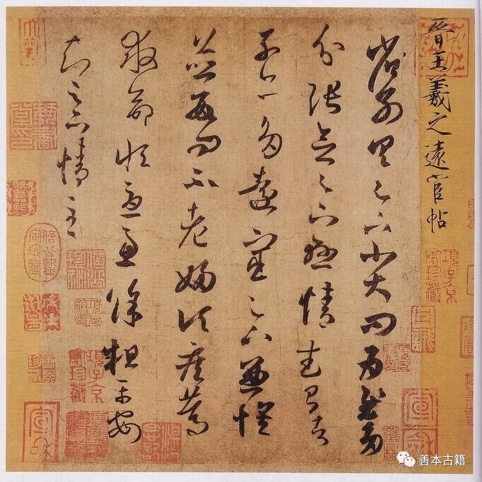 晉王羲之遠宦帖
省別具足下小大問為慰多
分張念足下懸情武昌諸
子亦多遠宦足下兼懷
並數問不老婦頃疾篤
救命恆憂慮餘粗平安
知足下情至
善本古籍